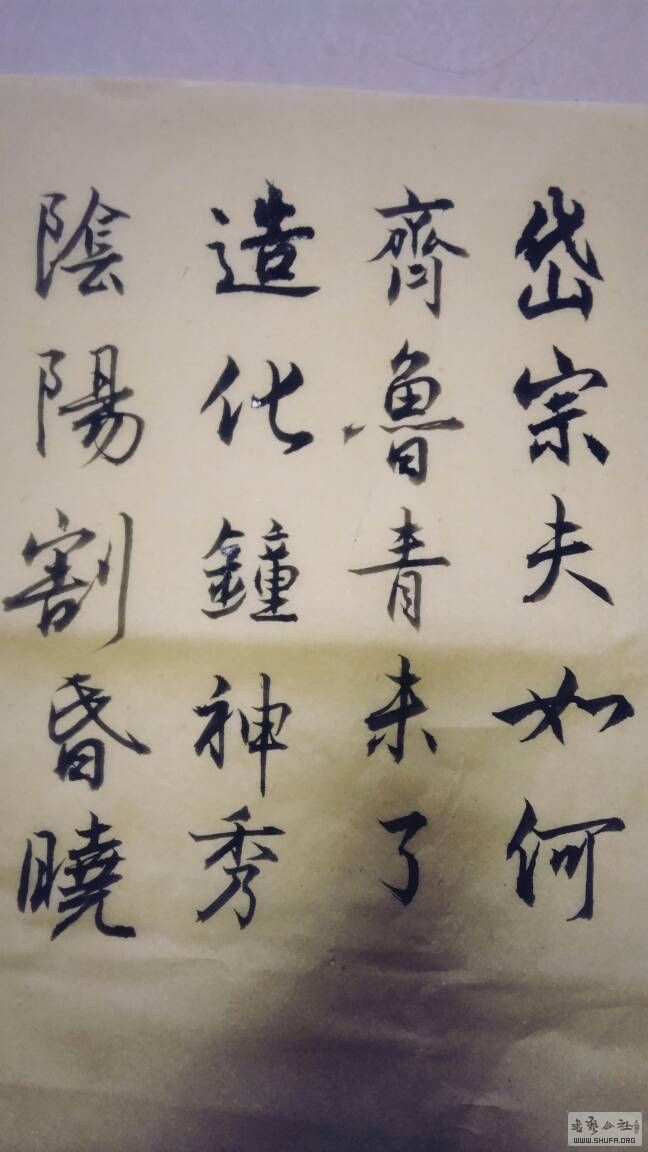 岱宗夫如何
齊魯青未了
造化鐘神秀
陰陽割昏曉
书艺公社
WWW.SHUFA.ORG